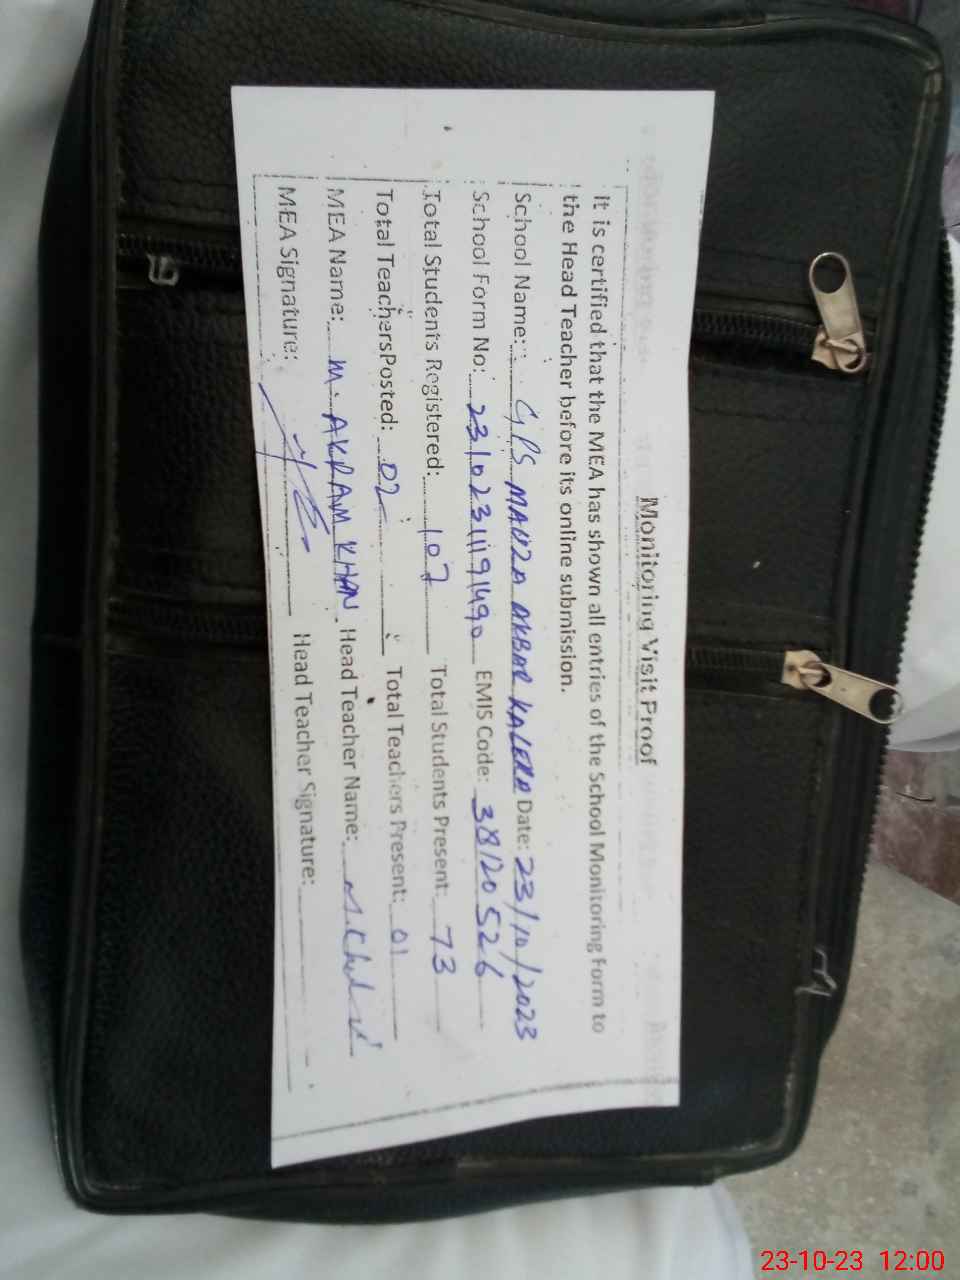 Monitoring Visit Proof
It is certified that the MEA has shown all entries of the School Monitoring Form to
the Head Teacher before its online submission.
School Name: GPS MAUZA AKBAR KALERA Date: 23/10/2023
School Form No: 231023119490 EMIS Code: 38120526
Total Students Registered: 107 Total Students Present: 73
Total Teachers Posted: 02 Total Teachers Present: 01
MEA Name: M. AKRAM KHAN Head Teacher Name:
MEA Signature: Head Teacher Signature:
23-10-23 12:00